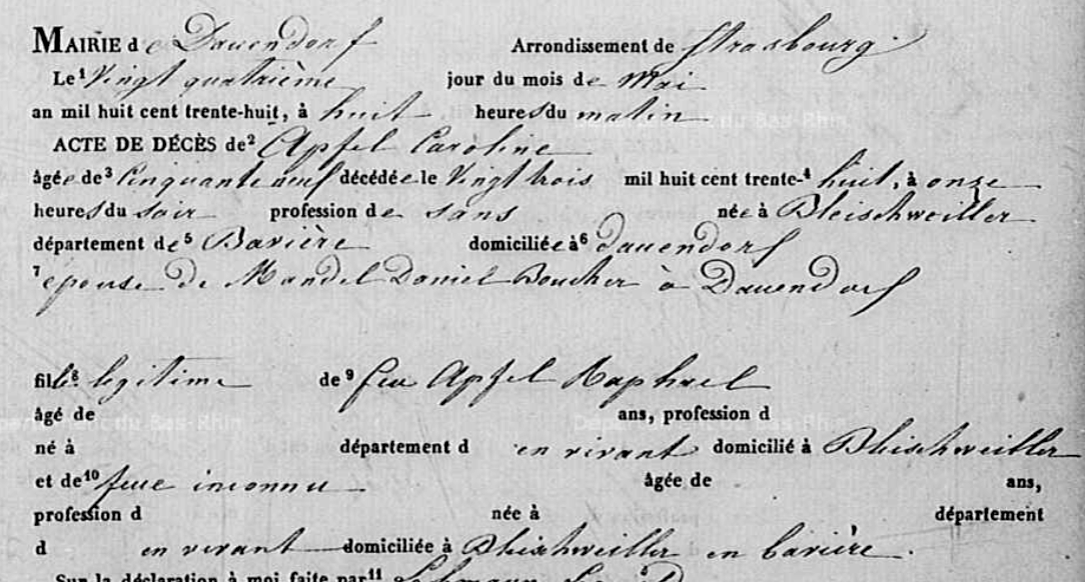 MAIRIE de Dauendorf Arrondissement de Strasbourg
Le 1 Vingt quatrième jour du mois de Mai
an mil huit cent trente-huit, à huit heures du matin
ACTE DE DÉCÈS de 2 Apfel Caroline
âgée de 3 Cinquante neuf décédée le Vingt trois mil huit cent trente- 4 huit, à onze
heures du soir profession de sans née à Bleischweiller
département de 5 Bavière domiciliée à 6 Dauendorf
7 épouse de Mandel Daniel Boucher à Dauendorf
fille 8 légitime de 9 feu Apfel Raphael
âgé de ans, profession d
né à département d en vivant domicilié à Bleischweiller
et de 10 feue inconnu âgée de ans,
profession d née à département
d en vivant domiciliée à Bleischweiller en bavière.
Sur la déclaration à moi faite par 11